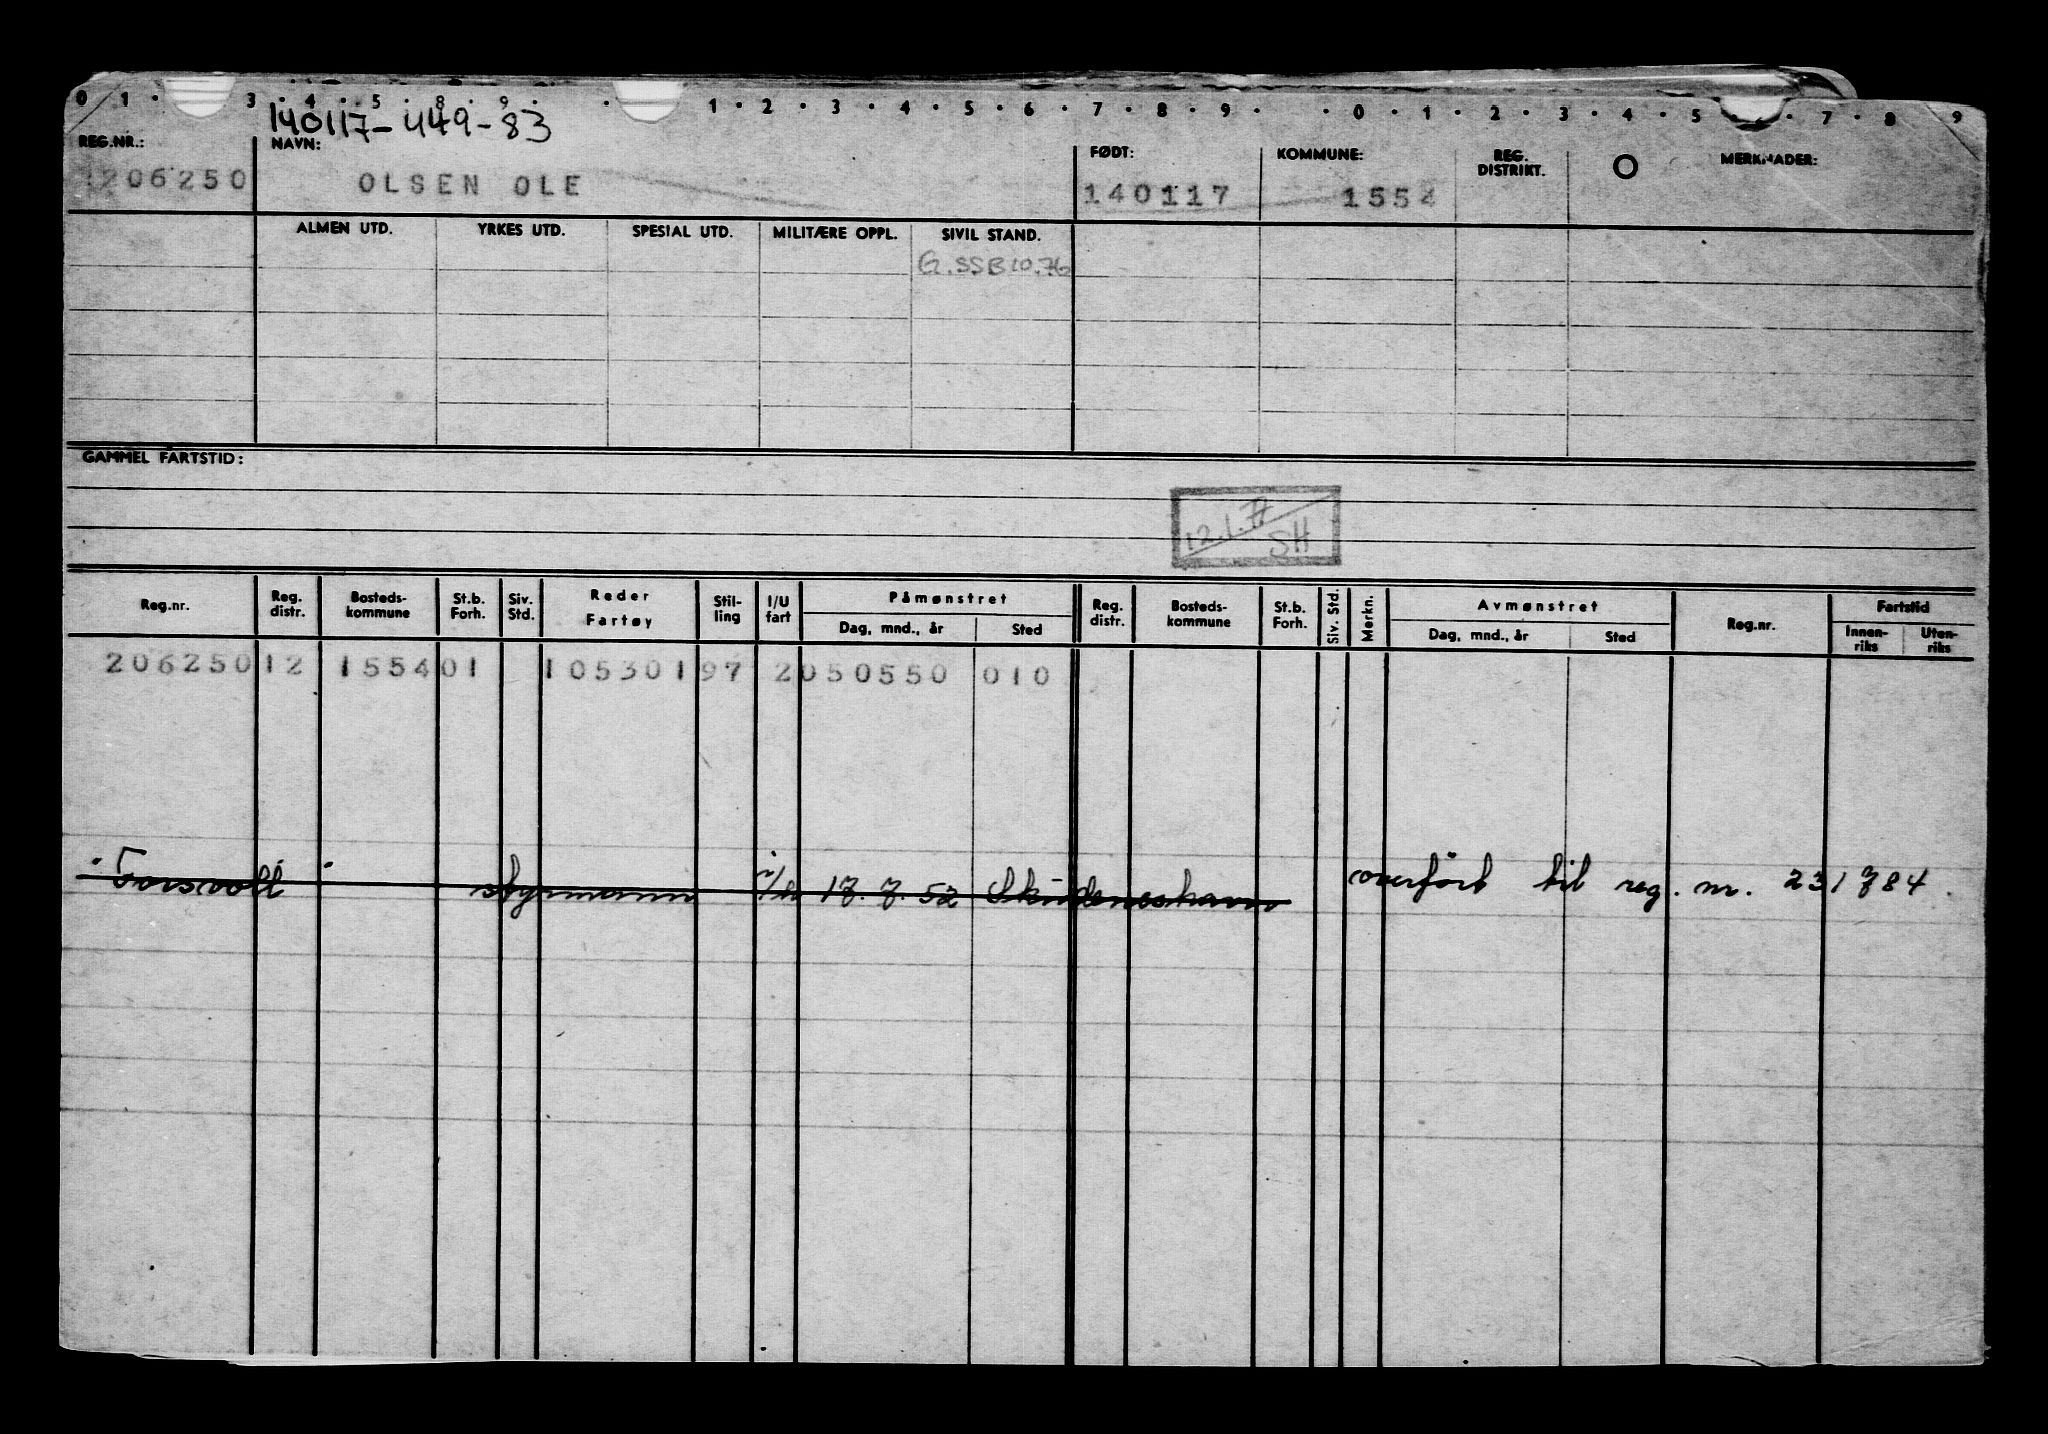 0 1 · 3 · 4 · 5 · 8 · 9 · · 1 · 2 · 3 · 4 · 5 · 6 · 7 · 8 · 9 · · 0 · 1 · 2 · 3 · 4 · 5 · 7 · 8 9
140117-449-83
REG.NR.: NAVN: FØDT: KOMMUNE: REG. DISTRIKT. O MERKNADER:
206250 OLSEN OLE 140117 1554
ALMEN UTD. YRKES UTD. SPESIAL UTD. MILITÆRE OPPL. SIVIL STAND.
G.SSB 10.76
GAMMEL FARTSTID:
12.1.77
SH
Reg.nr. Reg. distr. Bosteds-kommune St.b. Forh. Siv. Std. Reder Fartøy Stil-ling I/U fart Påmønstret Reg. distr. Bosteds-kommune St.b. Forh. Siv. Std. Merkn. Avmønstret Reg.nr. Fartstid
Dag, mnd., år Sted Dag, mnd., år Sted Innen-riks Uten-riks
206250 12 1554 01 105301 97 2 050550 010
styrmann 17.7.52 Skudeneshavn overført til reg. nr. 231784.